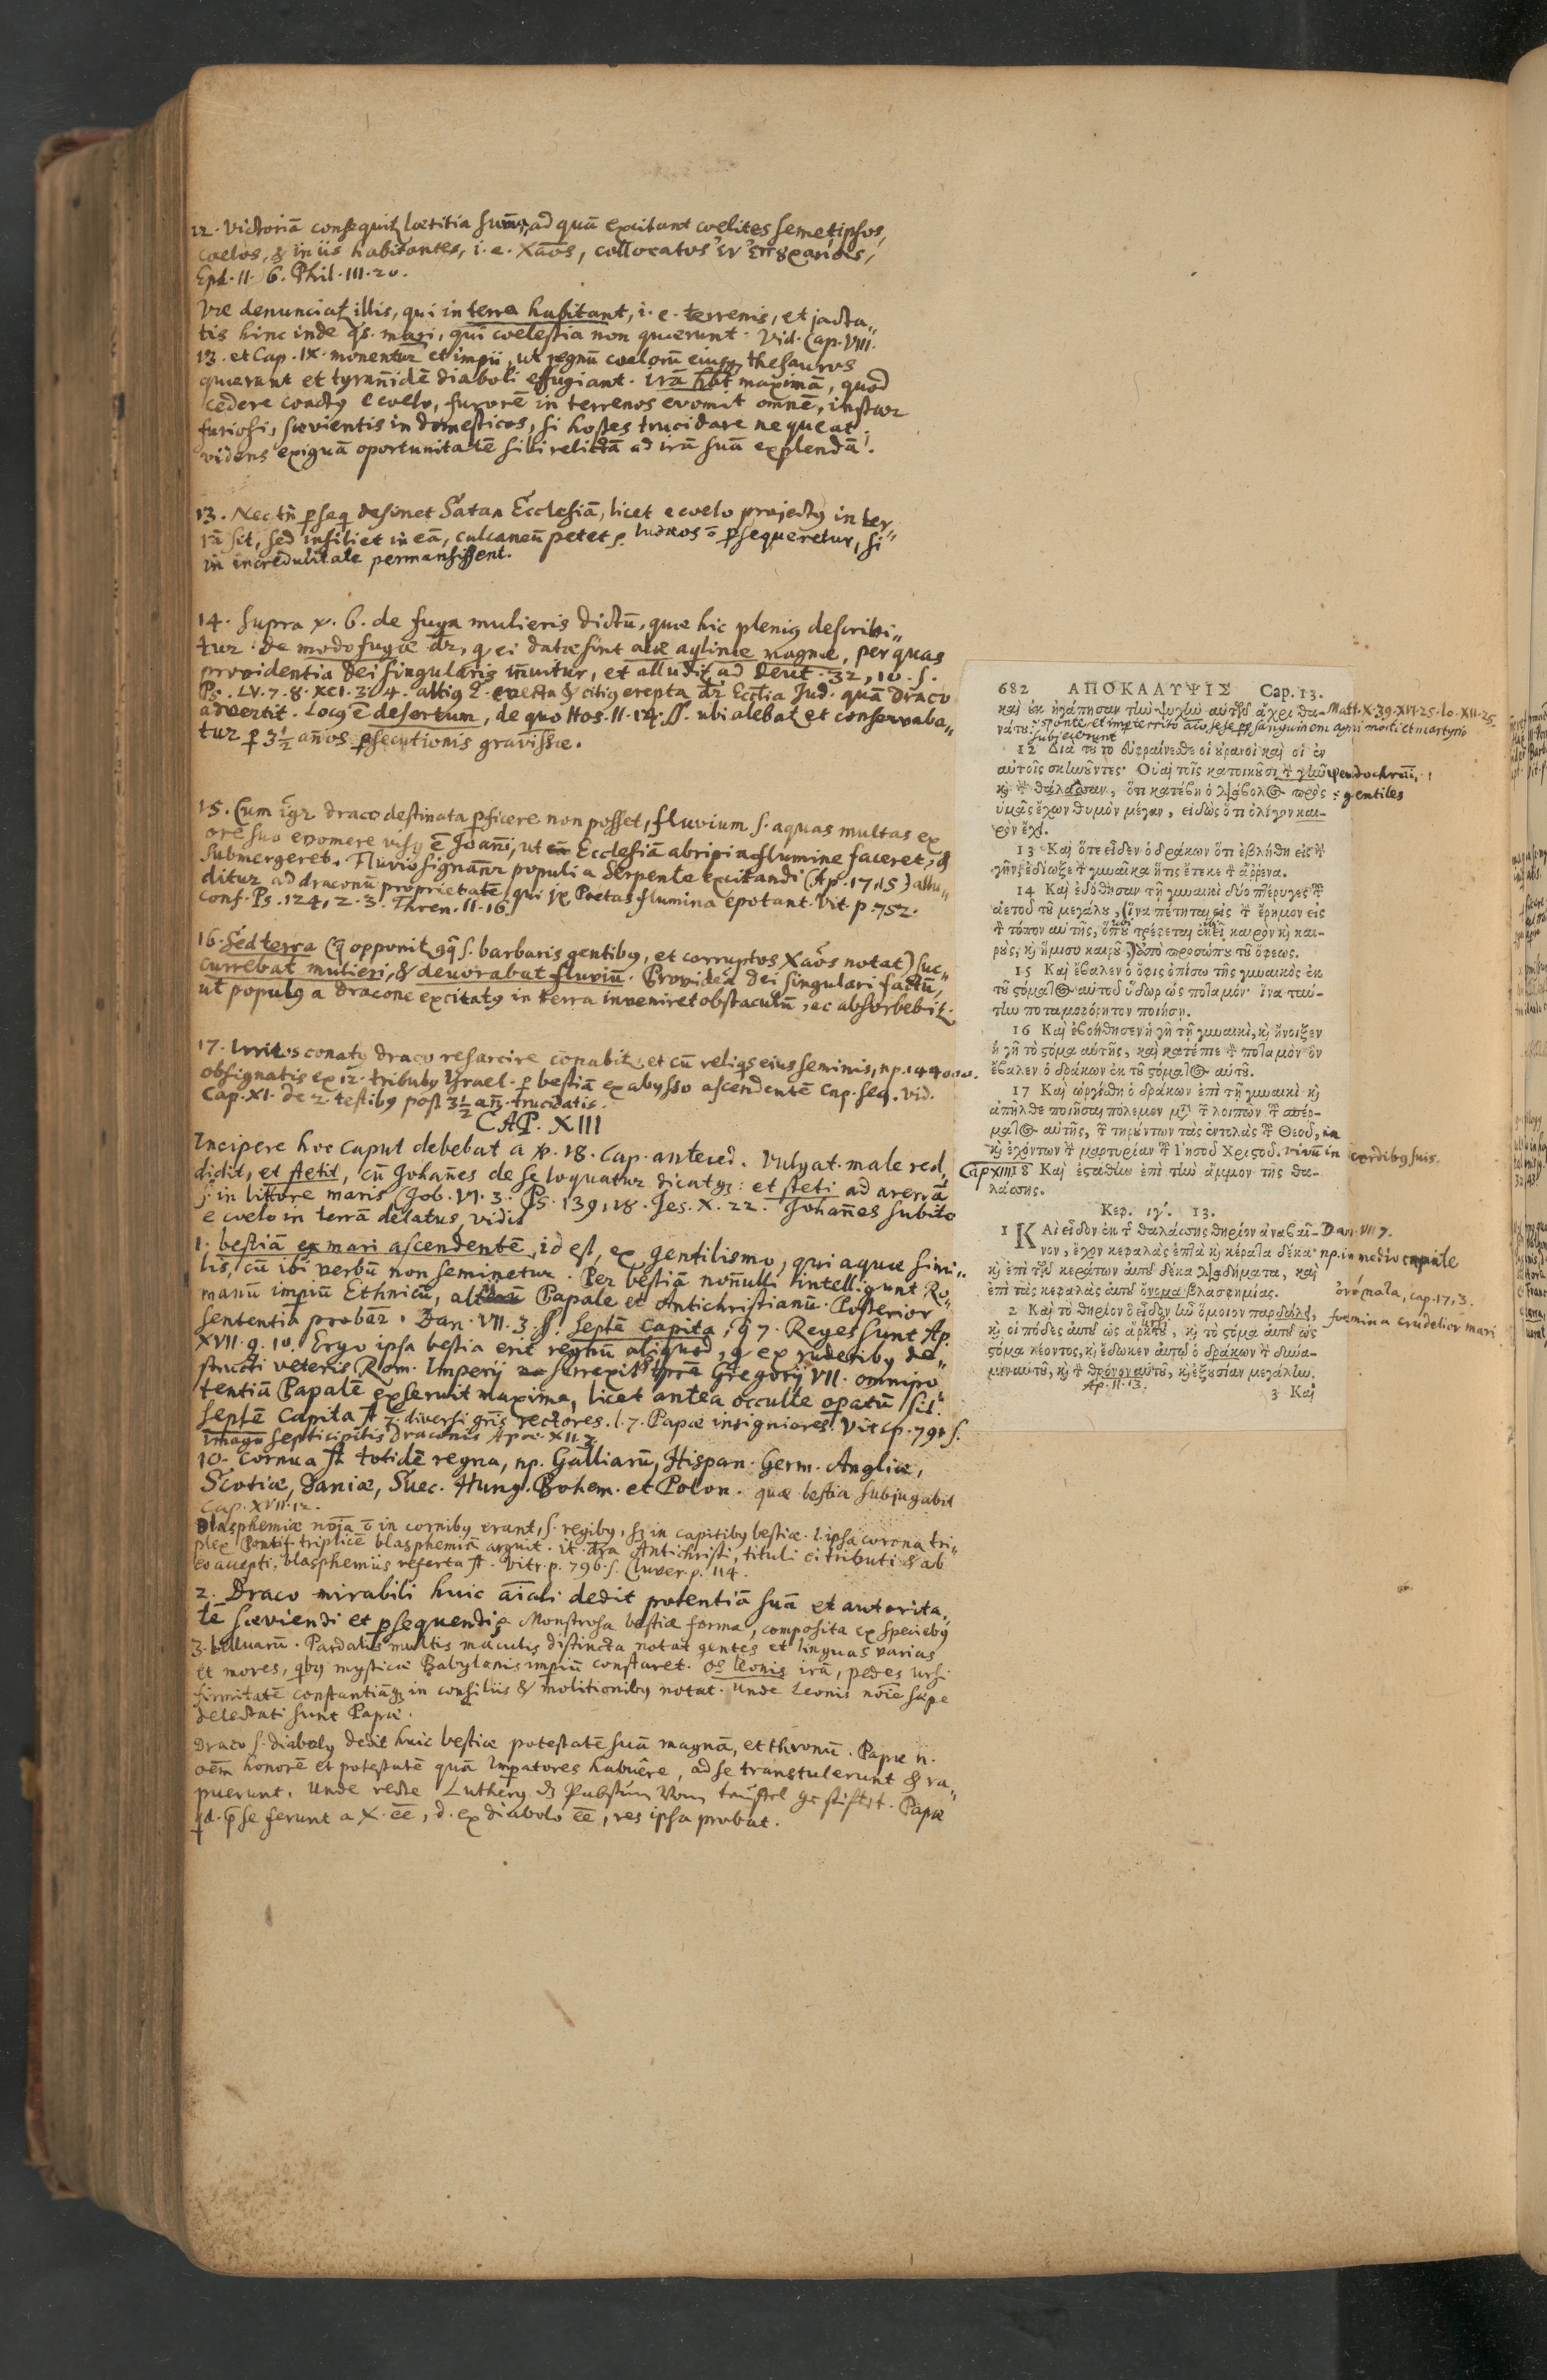 12. Victoriā consequit lætitia sum̄a, ad quā excitant cœlites semetipsos,
cœlos, & in iis habitantes, i. e. Xāos, collocatos ἐν ἐπουρανίοις,
Eph. II. 6. Phil. III. 20.
Væ denunciat illis, qui in terra habitant, i. e. terrenis, et jacta„
tis hinc inde qs. mari, qui cœlestia non quærunt. Vid. Cap. VIII.
13. et Cap. IX. monentur et impii, ut regnū cœlorū eiusq; thesauros
quærant et tyran̄idē diaboli effugiant. irā hbt maximā, quod
cedere coactꝰ e cœlo, furorē in terrenos evomit omnē, instar
furiosi, sævientis in domesticos, si hostes trucidare nequeat.
videns exiguā oportunitatē sibi relictā ad irā suā explendā.
13. Nec tn̄ ꝑseq desinet Satan Ecclesiā, licet e cœlo projectꝰ in ter„
rā sit, sed insiliet in eā, calcaneū petet ς. Iudæos ō ꝑsequeretur, si
in incredulitate permansissent.
14. Supra ℣. 6. de fuga mulieris dictū, quæ hic pleniꝰ describi„
tur. De modo fugæ dr̄, q ei datæ sint alæ aqlinæ magnæ, per quas
providentia Dei singularis in̄uitur, et alludit ad Deut. 32, 10. s.
Ps. LV. 7. 8. XCI. 3. 4. altiꝰ evecta & citiꝰ erepta dr̄ Eccl̄ia Jud. quā draco
advertit. Locꝰ ē desertum, de quo Hos. II. 14. ss. ubi alebat et conservaba„
tur ꝑ 3½ an̄os ꝑsecutionis gravissæ.
15. Cum igr draco destinata ꝑficere non posset, fluvium s. aquas multas ex
ore suo evomere visꝰ ē Joan̄i, ut Ecclesiā abripi a flumine faceret, &
submergeret. Fluvio signan̄r populi a Serpente excitandi (Ap. 17, 15) allu„
ditur ad draconū proprietatē, qui jx Poetas flumina epotant. Vit. p. 752.
conf. Ps. 124, 2. 3. Thren. III. 16.
16. Sed terra (q opponit aq̄ s. barbaris gentibꝰ, et corruptos Xāos notat) suc„
currebat mulieri, & devorabat fluviū. Providēa Dei singulari factū,
ut populꝰ a dracone excitatꝰ in terra inveniret obstaculū, ac absorbebit.
17. Irritos conatꝰ draco resarcire conabit, et cū reliqs eius seminis, np. 144000.
obsignatis ex 12. tribubꝰ Israel. ꝑ bestiā ex abysso ascendentē Cap. seq. vid.
Cap. XI. de 2. testibꝰ post 3½ an̄. trucidatis.
CAP. XIII
Incipere hoc caput debebat a ℣. 18. Cap. anteced. Vulgat. male red„
didit, et stetit, cū Johan̄es de se loquatur dicatq;: et steti ad arenā
s. in littore maris (Job. VI. 3. Ps. 139, 18. Jes. X. 22. Johan̄es subito
e cœlo in terrā delatus, vidit
1. bestiā ex mari ascendentē, id est, ex gentilismo, qui aquæ simi„
lis, cū ibi verbū non seminetur. Per bestiā non̄ulli intelligunt Ro„
manū impiū Ethnicū, alii Papale et Antichristianū. Posterior
sententia probār. Dan. VII. 3. ss. Septē Capita, q 7. Reges sunt Ap.
XVII. 9. 10. Ergo ipsa bestia erit regnū aliquod, q ex ruderibꝰ de„
structi veteris Rom. Imperij surrexit Gregorij VII. omnipo
tentiā Papalē exseruit maxime, licet antea occulte opatū sit.
Septē Capita st 7. diversi gn̄is rectores. l. 7. Papæ insigniores. Vit. p. 791 s.
imago septicipitis Draconis Apoc. XII. 3.
10. Cornua st totidē regna, np. Galliarū, Hispan. Germ. Angliæ,
Scotiæ, Daniæ, Suec. Hung. Bohem. et Polon. quæ bestia subjugabit
Cap. XVII. 12.
Blasphemiæ noīa ō in cornibꝰ erant, s. regibꝰ, sz in capitibꝰ bestiæ. l. ipsa corona tri„
plex Pontif. triplicē blasphemiā arguit. it. Antichristi, tituli ei tributi & ab
eo accepti, blasphemiis referta st. Vitr. p. 796. s. Cluver. p. 114.
2. Draco mirabili huic aīali dedit potentiā suā et autorita„
tē sæviendi et ꝑsequendi. Monstrosa bestiæ forma, composita ex speciebꝰ
3. belluarū. Pardalis multis maculis distincta notat gentes et linguas varias
et mores, qbꝰ mysticæ Babylonis impiū constaret. Os leonis irā, pedes ursi
firmitatē constantiāq; in consiliis & molitionibꝰ notat. Unde Leonis noīe sæpe
delectati sunt Papæ.
Draco s. diabolꝰ dedit huic bestiæ potestatē suā magnā, et thronū. Papæ n.
oēm honorē et potestatē quā Impatores habuêre, ad se transtulerunt & ra„
puerunt. Unde recte Lutherꝰ ds Pabstum vom teuffel gestiftet. Papæ
qd. p̄ se ferunt a X. ēē, d. ex diabolo ēē, res ipsa probat.
682 ΑΠΟΚΑΛΥΨΙΣ Cap. 13.
καὶ ἐκ ἠγάπησαν τὴν ψυχὴν αὐτῶν ἄχρι θα- Matt. X. 39. XVI. 25. Io. XII. 25.
νάτου. sponte et imperterrito aīo sese per sanguinem agni morti et martyrio
subjecerunt
12 Διὰ τοῦτο εὐφραίνεσθε οἱ οὐρανοὶ καὶ οἱ ἐν
αὐτοῖς σκηνοῦντες· Οὐαὶ τοῖς κατοικοῦσι τὴν γῆν pseudochrīni,
καὶ τὴν θάλασσαν, ὅτι κατέβη ὁ διάβολος πρὸς : gentiles
ὑμᾶς ἔχων θυμὸν μέγαν, εἰδὼς ὅτι ὀλίγον και-
ρὸν ἔχει.
13 Καὶ ὅτε εἶδεν ὁ δράκων ὅτι ἐβλήθη εἰς τὴν
γῆν, ἐδίωξε τὴν γυναῖκα ἥτις ἔτεκε τὸν ἄρρενα.
14 Καὶ ἐδόθησαν τῇ γυναικὶ δύο πτέρυγες τοῦ
ἀετοῦ τοῦ μεγάλου, (ἵνα πέτηται εἰς τὴν ἔρημον εἰς
τὸν τόπον αὑτῆς, ὅπου τρέφεται ἐκεῖ καιρὸν καὶ και-
ροὺς, καὶ ἥμισυ καιροῦ,) ἀπὸ προσώπου τοῦ ὄφεως.
15 Καὶ ἔβαλεν ὁ ὄφις ὀπίσω τῆς γυναικὸς ἐκ
τοῦ στόματος αὑτοῦ ὕδωρ ὡς ποταμόν· ἵνα ταύ-
την ποταμοφόρητον ποιήσῃ.
16 Καὶ ἐβοήθησεν ἡ γῆ τῇ γυναικὶ, καὶ ἤνοιξεν
ἡ γῆ τὸ στόμα αὑτῆς, καὶ κατέπιε τὸν ποταμὸν ὃν
ἔβαλεν ὁ δράκων ἐκ τοῦ στόματος αὑτοῦ.
17 Καὶ ὠργίσθη ὁ δράκων ἐπὶ τῇ γυναικὶ· καὶ
ἀπῆλθε ποιῆσαι πόλεμον μετὰ τῶν λοιπῶν τοῦ σπέρ-
ματος αὐτῆς, τῶν τηρούντων τὰς ἐντολὰς τοῦ Θεοῦ,
καὶ ἐχόντων τὴν μαρτυρίαν τοῦ Ἰησοῦ Χριστοῦ. vivū in cordibꝰ suis.
Cap XIII. 18 Καὶ ἐστάθην ἐπὶ τὴν ἄμμον τῆς θα-
λάσσης.
Κεφ. ιγʹ. 13.
1 ΚΑὶ εἶδον ἐκ τῆς θαλάσσης θηρίον ἀναβαῖ- Dan. VII 7.
νον, ἔχον κεφαλὰς ἑπτὰ καὶ κέρατα δέκα· np. in medio capite
καὶ ἐπὶ τῶν κεράτων αὑτοῦ δέκα διαδήματα, καὶ
ἐπὶ τὰς κεφαλὰς αὑτοῦ ὄνομα βλασφημίας. ὀνόματα, cap. 17, 3.
2 Καὶ τὸ θηρίον ὃ εἶδον ἦν ὅμοιον παρδάλει, fœmina crudelior mari
καὶ οἱ πόδες αὑτοῦ ὡς ἄρκτου, καὶ τὸ στόμα αὑτοῦ ὡς
στόμα λέοντος, καὶ ἔδωκεν αὐτῷ ὁ δράκων τὴν δύνα-
μιν αὑτοῦ, καὶ τὸν θρόνον αὑτοῦ, καὶ ἐξουσίαν μεγάλην.
Ap. II. 13.
3 Καὶ